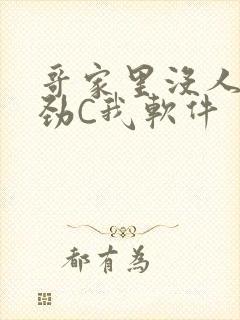 哥家里没人
劲C我软件
都有为